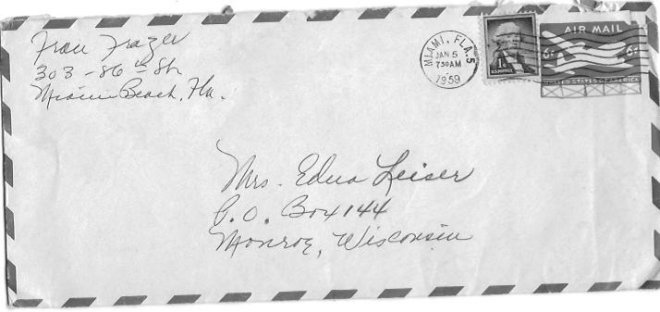 Fran Frazer
303 - 86th St.
Miami Beach, Fla.
MIAMI, FLA. 5
JAN 5
7 30 AM
1959
AIR MAIL
6¢ 6¢
UNITED STATES OF AMERICA
Mrs. Edna Leiser
P.O. Box 144
Monroe, Wisconsin